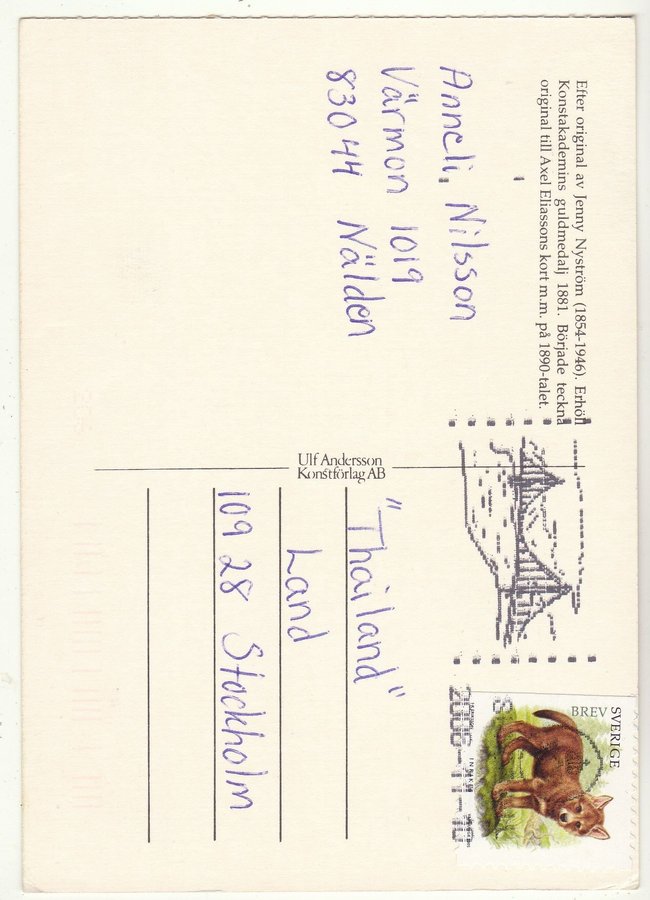 Efter original av Jenny Nyström (1854-1946). Erhöll
Konstakademins guldmedalj 1881. Började teckna
original till Axel Eliassons kort m.m. på 1890-talet.
Anneli Nilsson
Värmon 1019
83044 Nälden
Ulf Andersson
Konstförlag AB
"Thailand"
Land
109 28 Stockholm
SVERIGE
BREV